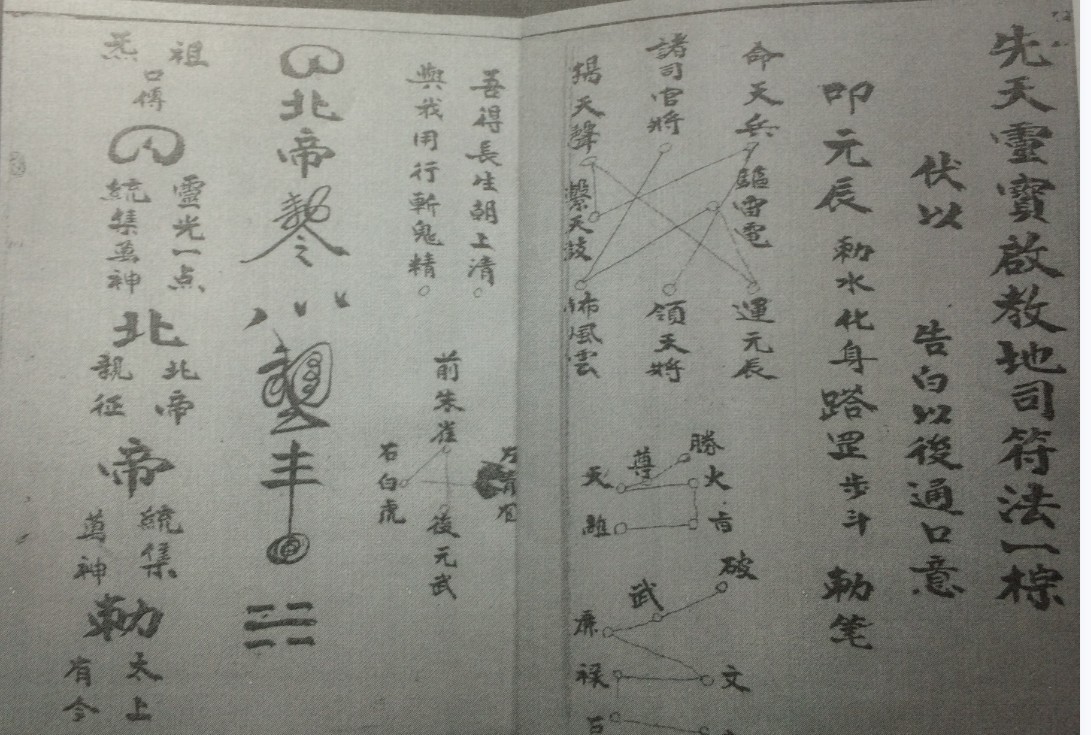 先天靈寳啟教地司符法一棕
伏以 告白以後通口意
叩元辰 勅水化身踏罡步斗 勅笔
命天兵 驅雷電 運元辰
諸司官將 領天將
揚天聲 繫天鼓 佈風雲
勝
尊
天 火
離
破
武
廉
文
禄
吾得長生朝上清
與我用行斬鬼精
前朱雀
右白虎
後元武
北帝
祖炁
口傳
靈光一点
統集萬神
北
北帝
親征
帝
統集
萬神
勅
太上
有令